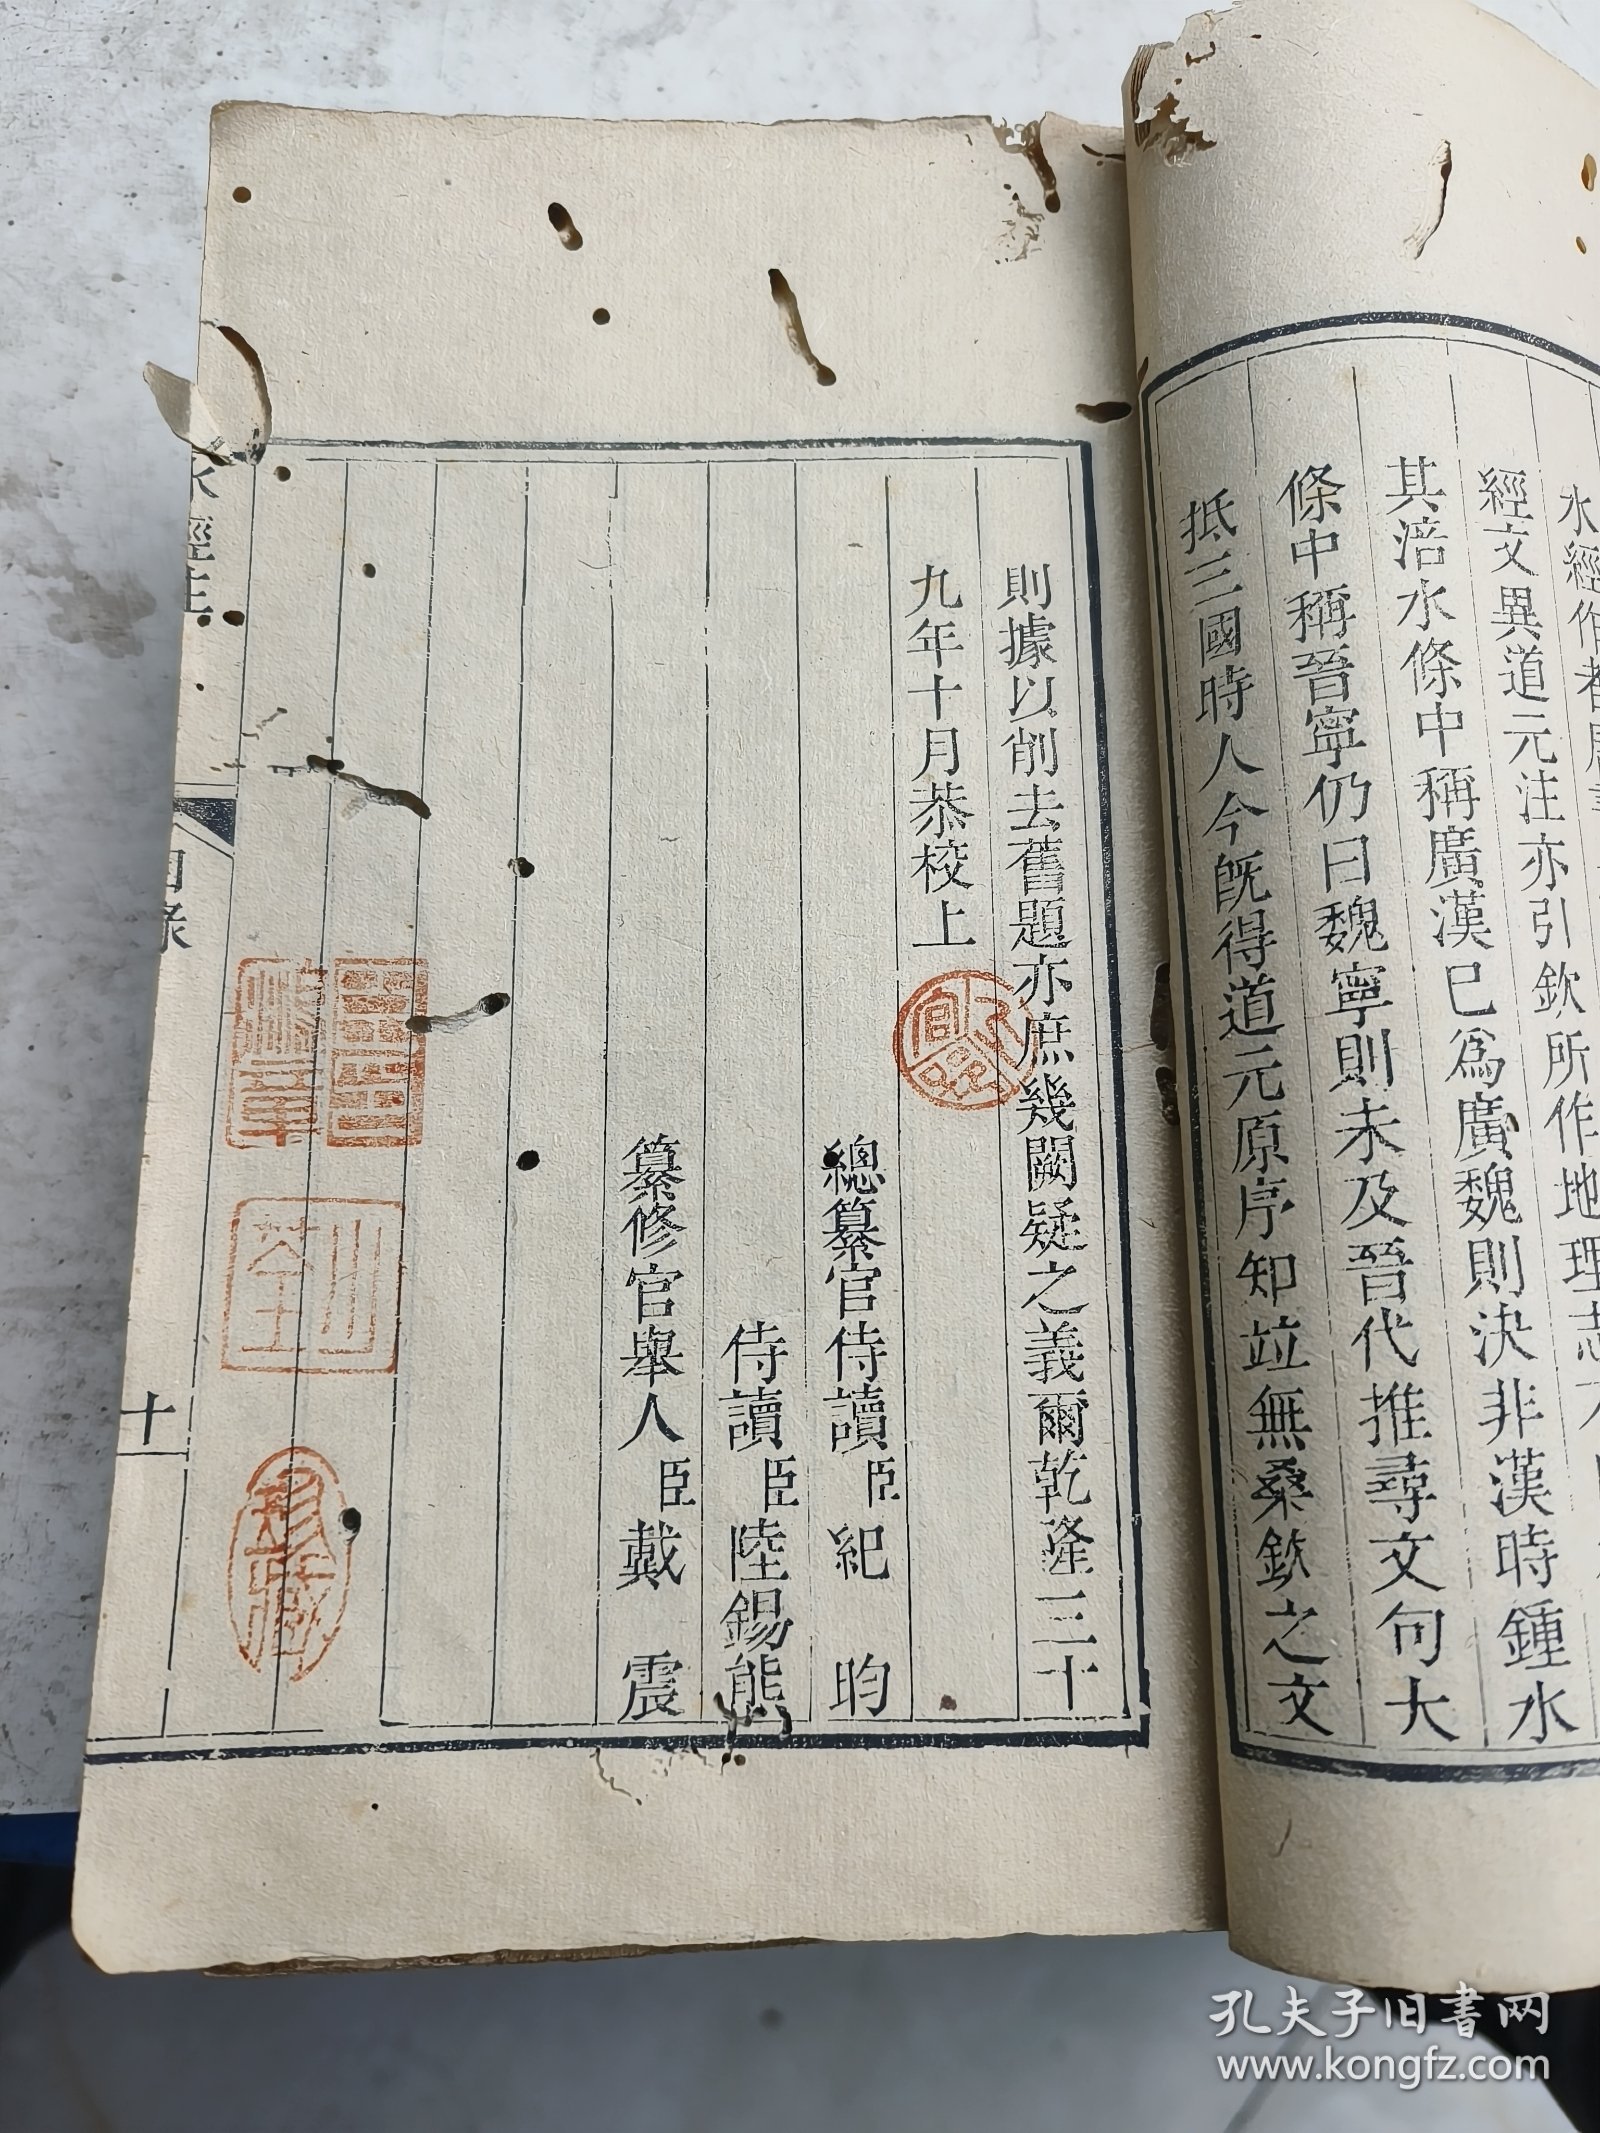 水經作者唐書
經文異道元注亦引欽所作地理志
其涪水條中稱廣漢已爲廣魏則決非漢時鍾水
條中稱晉寧仍曰魏寧則未及晉代推尋文句大
抵三國時人今旣得道元原序知竝無桑欽之文
則據以削去舊題亦庶幾闕疑之義爾乾隆三十
九年十月恭校上
總纂官侍讀臣紀昀
侍讀臣陸錫熊
纂修官舉人臣戴震
水經注
目錄
十
孔夫子旧书网
www.kongfz.com